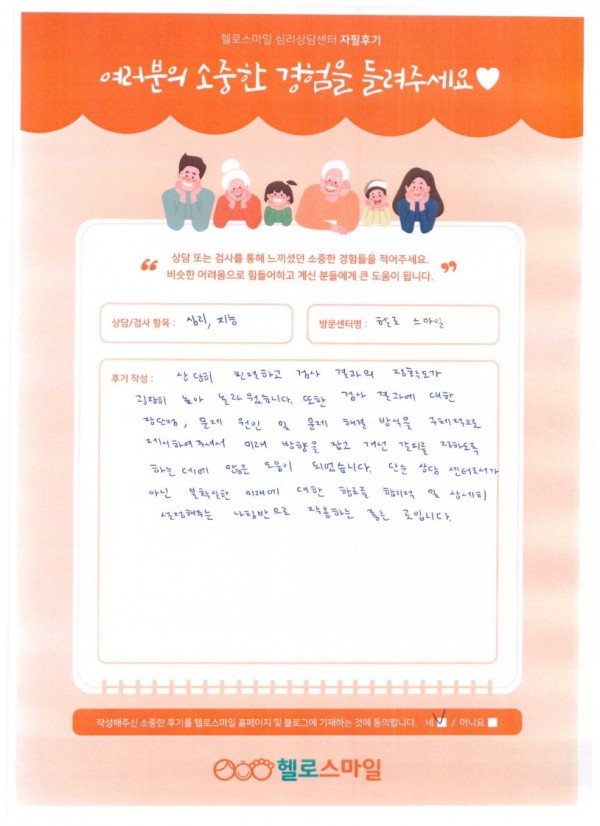 헬로스마일 심리상담센터 자필후기
여러분의 소중한 경험을 들려주세요
상담 또는 검사를 통해 느끼셨던 소중한 경험들을 적어주세요.
비슷한 어려움으로 힘들어하고 계신 분들에게 큰 도움이 됩니다.
상담/검사 항목 : 심리, 지능
방문센터명 : 헬로 스마일
후기 작성 : 상당히 친절하고 검사 결과의 정확도가
굉장히 높아 놀라웠습니다. 또한 검사 결과에 대한
장단점, 문제 원인 및 문제 해결 방식을 구체적으로
제시하여주셔서 미래 방향을 잡고 개선 갈피를 잡도록
하는데에 많은 도움이 되었습니다. 단순 상담 센터로서가
아닌 불확실한 미래에 대한 항로를 합리적 및 상세히
설정해주는 나침반으로 작용하는 좋은 곳입니다.
작성해주신 소중한 후기를 헬로스마일 홈페이지 및 블로그에 기재하는 것에 동의합니다. 네 / 아니요
헬로스마일